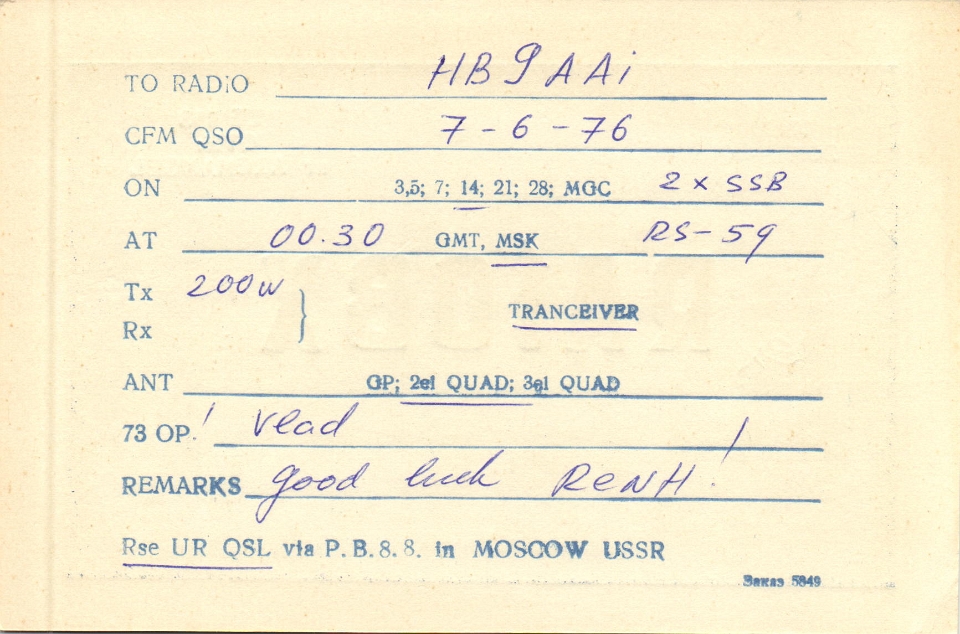 TO RADIO HB9AAi
CFM QSO 7-6-76
ON 3,5; 7; 14; 21; 28; MGC 2 x SSB
AT 00.30 GMT, MSK RS-59
Tx 200w
TRANCEIVER
Rx
ANT GP; 2el QUAD; 3el QUAD
73 OP.! Vlad
REMARKS good luck ReNH!
Rse UR QSL via P.B.8.8. in MOSCOW USSR
Заказ 5849